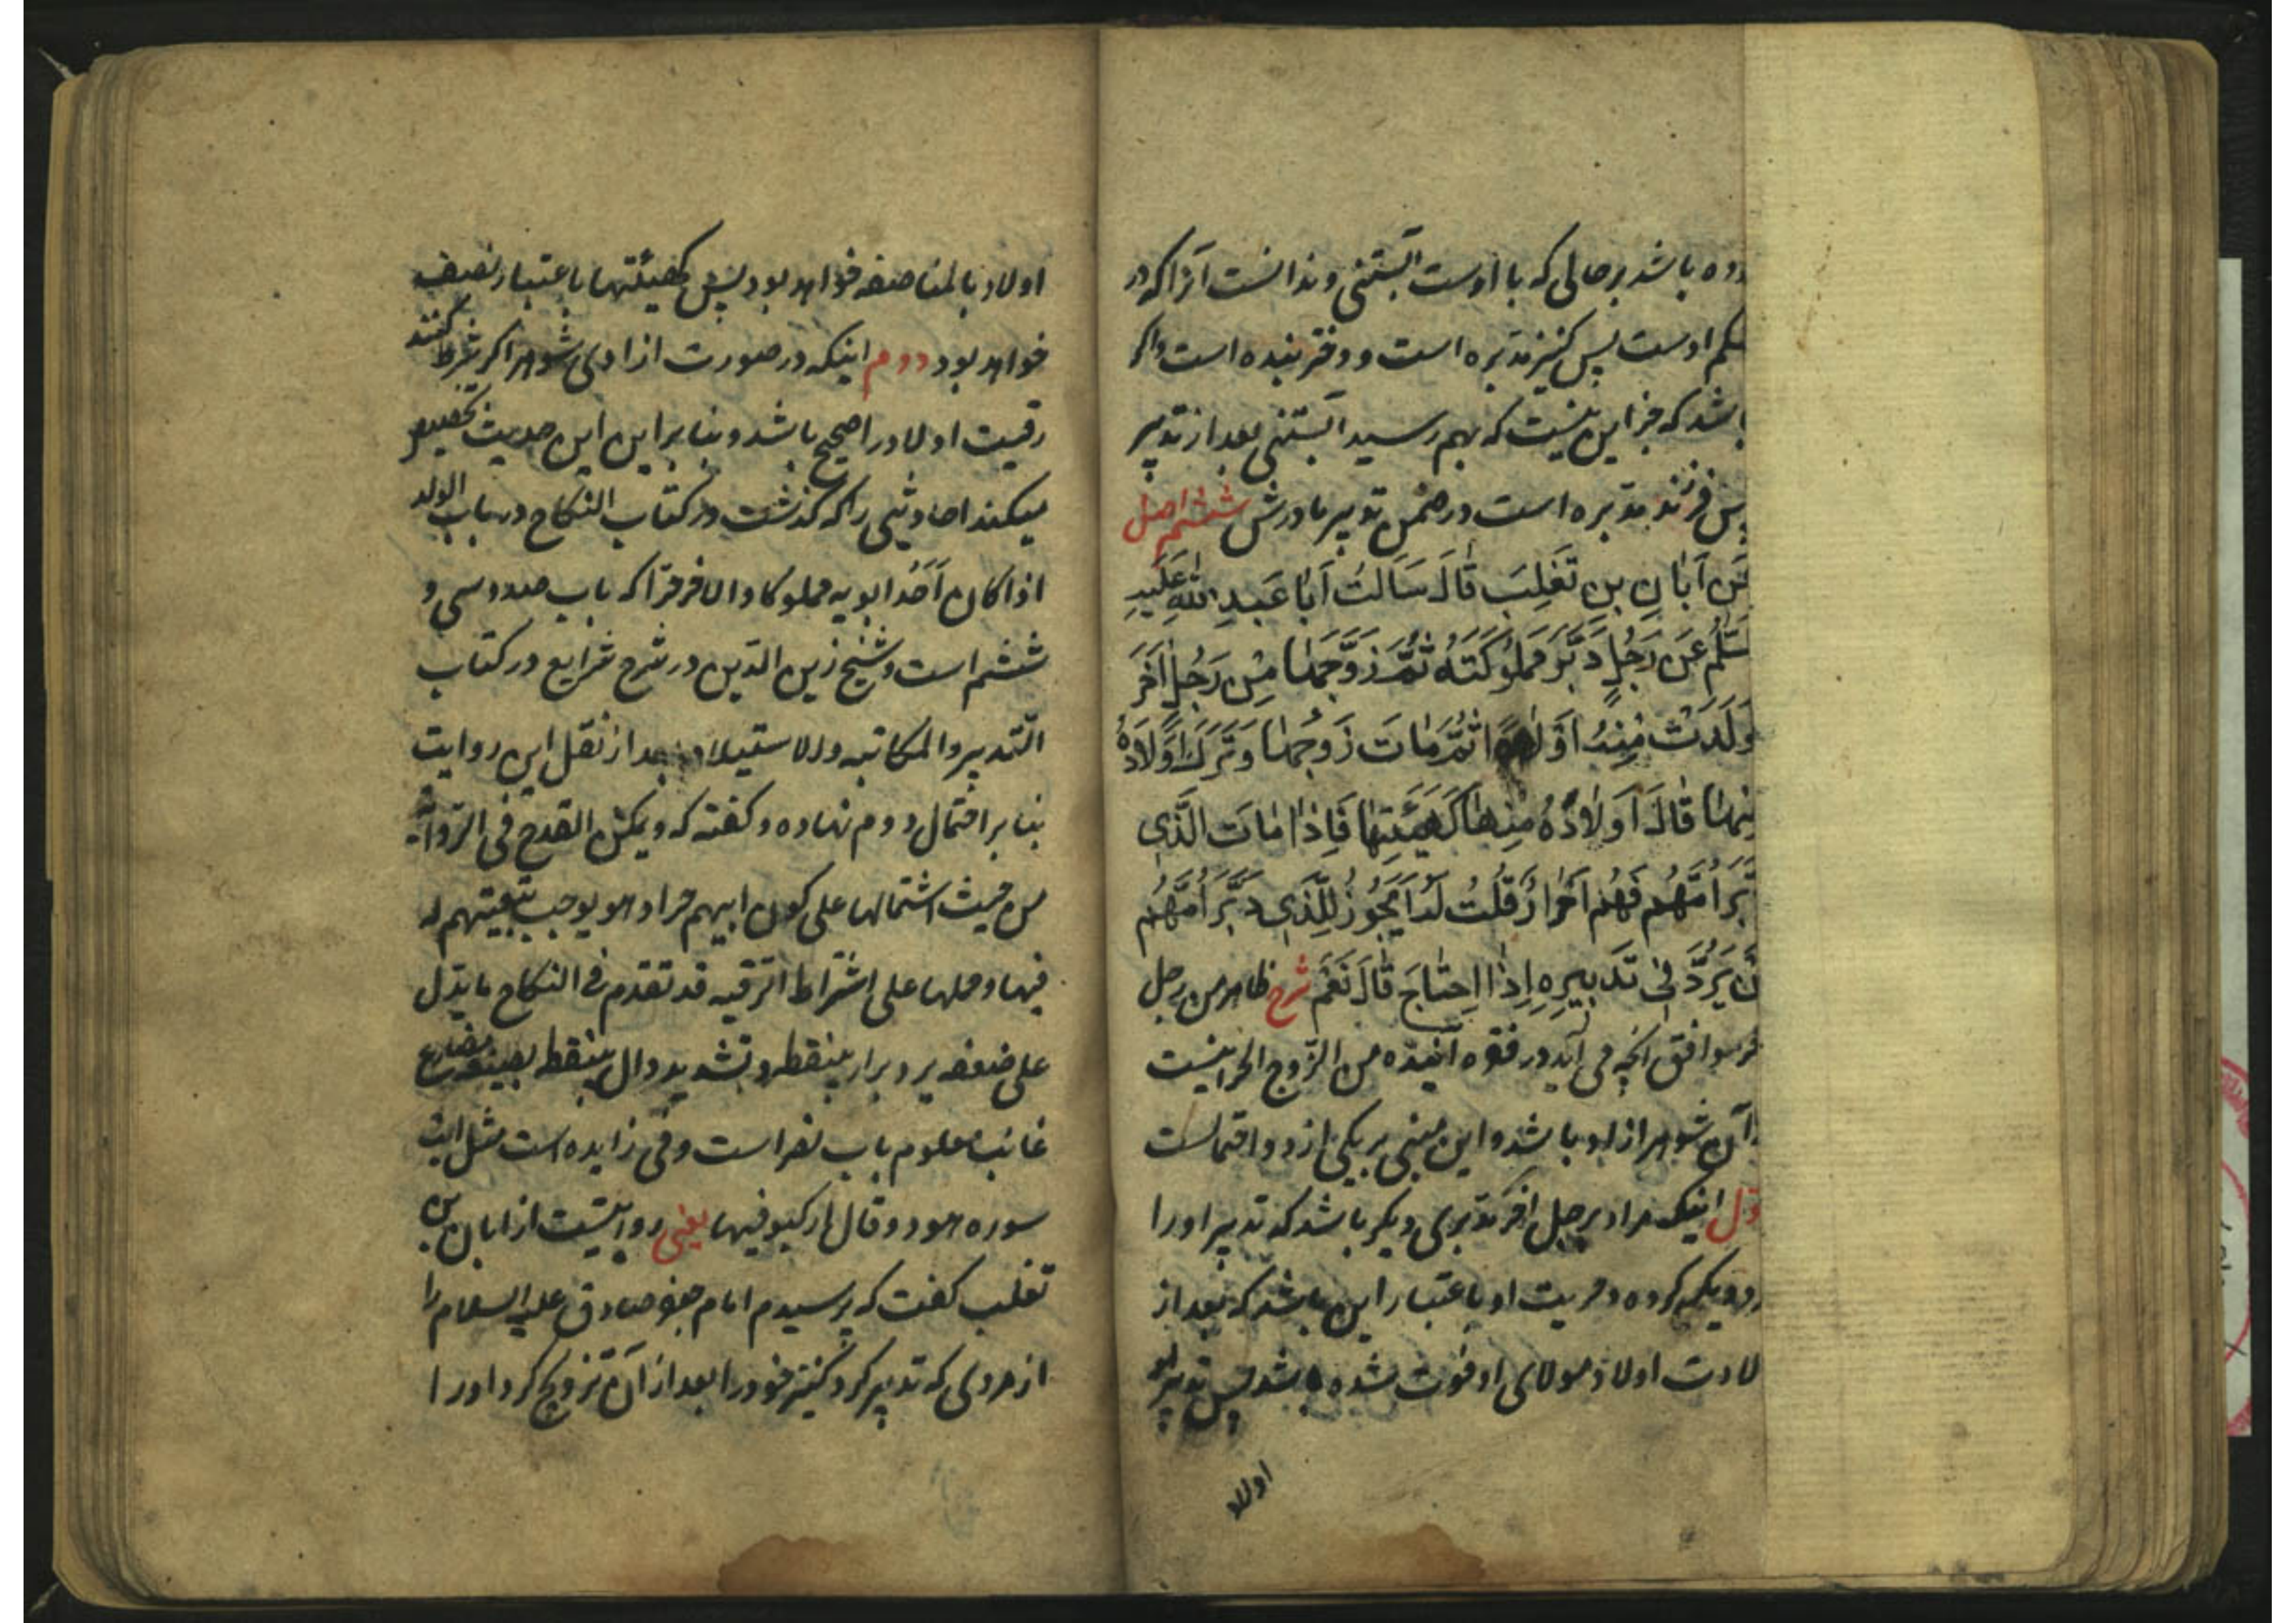 ده باشد بر حالی که با اوست آبستنی و ندانست آنرا که در
شکم اوست پس کنیز مدبره است و دختر بنده است و اگر
باشد که جز این نیست که بهم رسید آبستنی بعد از تدبیر
پس فرزند مدبره است در ضمن تدبیر مادرش ششم اصل
عَن اَبَانِ بنِ تَغلِبَ قَالَ سَاَلتُ اَبَا عَبدِ اللهِ عَلَیهِ
سَّلَمُ عَن رَجُلٍ دَبَّرَ مَملُوکَتَهُ ثُمَّ زَوَّجَهَا مِن رَجُلٍ اٰخَرَ
وَلَدَت مِنهُ اَولَادًا ثُمَّ مَاتَ زَوجُهَا وَتَرَکَ اَولَادَهُ
مِنهَا قَالَ اَولَادُهُ مِنهَا کَهَیئَتِهَا فَاِذَا مَاتَ الَّذِی
دَبَّرَ اُمَّهُم فَهُم اَحرَارٌ قُلتُ لَهُ اَیَجُوزُ لِلَّذِی دَبَّرَ اُمَّهُم
اَن یَرُدَّ فِی تَدبِیرِهِ اِذَا احتَاجَ قَالَ نَعَم شرح ظاهر من رجل
خر موافق آنچه می آید در فقره آینده من الزوج الحر اینست
که آن شوهر ازاد باشد و این مبنی بر یکی از دو احتمالست
اول اینکه مراد برجل اخر مدبری دیکر باشد که تدبیر او را
دیکر کرده و حریت او باعتبار این باشد که بعد از
لادت اولاد مولای او فوت شده باشد پس تدبیر
اولاد
اولاد بالمناصفه خواهد بود پس کهیئتها باعتبار نصف
خواهد بود دوم اینکه در صورت ازادی شوهر اکر شرط کنند
رقیت اولاد را صحیح باشد و بنا بر این این حدیث تخصیص
میکند احادیثی را که کذشت در کتاب النکاح در باب الولد
اذا کان اَحَدُ ابویه مملوکا و الاخر حرّا که باب صد و سی و
ششم است و شیخ زین الدّین در شرح شرایع در کتاب
التّدبیر و المکاتبه و الاستیلاد بعد از نقل این روایت
بنا بر احتمال دوم نهاده و کفته که و یمکن القدح فی الرّوایة
من حیث اشتمالها علی کون ابیهم حرا و هو یوجب تبعیتهم له
فیها و حملها علی اشتراط الرقیه قد تقدم فی النکاح ما یدّل
علی ضعفه یرد برا بینقطه و تشدید دال بینقطه بصیغه مضارع
غائب معلوم باب نصر است و فی زایده است مثل ایت
سوره هود و قال ارکبو فیها یعنی روایتست از ابان بن
تغلب کفت که پرسیدم امام جعفر صادق علیه السلام را
از مردی که تدبیر کرد کنیز خود را بعد از آن تزویج کرد او را